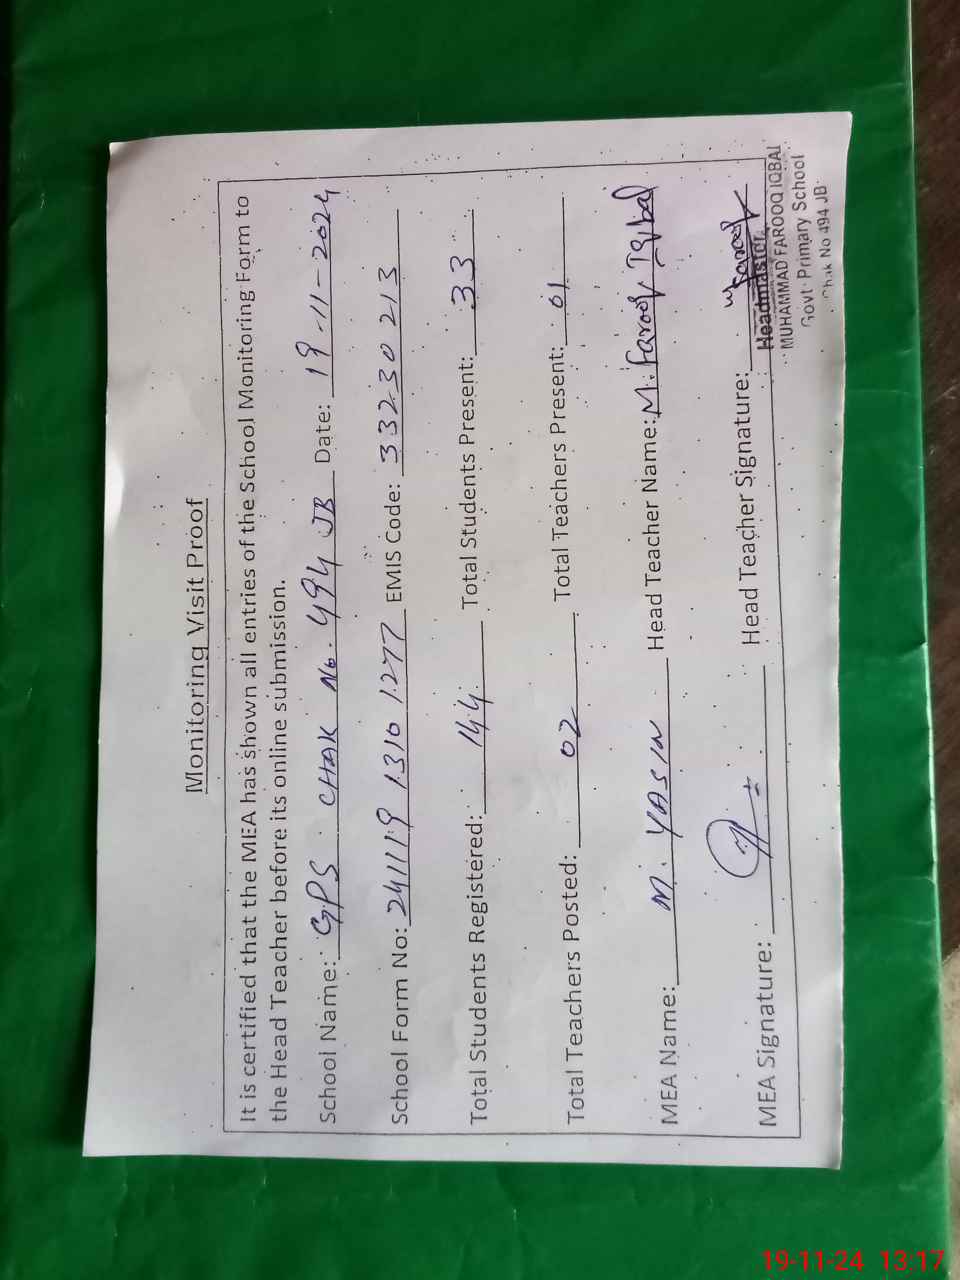 Monitoring Visit Proof
It is certified that the MEA has shown all entries of the School Monitoring Form to
the Head Teacher before its online submission.
School Name: GPS CHAK No. 494 JB Date: 19-11-2024
School Form No: 241119 1310 1277 EMIS Code: 332 30 213
Total Students Registered: 44 Total Students Present: 33
Total Teachers Posted: 02 Total Teachers Present: 01
MEA Name: M. YASIN Head Teacher Name: M. Farooq Iqbal
MEA Signature: Head Teacher Signature: Farooq
Headmaster
MUHAMMAD FAROOQ IQBAL
Govt. Primary School
Chak No 494 JB
19-11-24 13:17